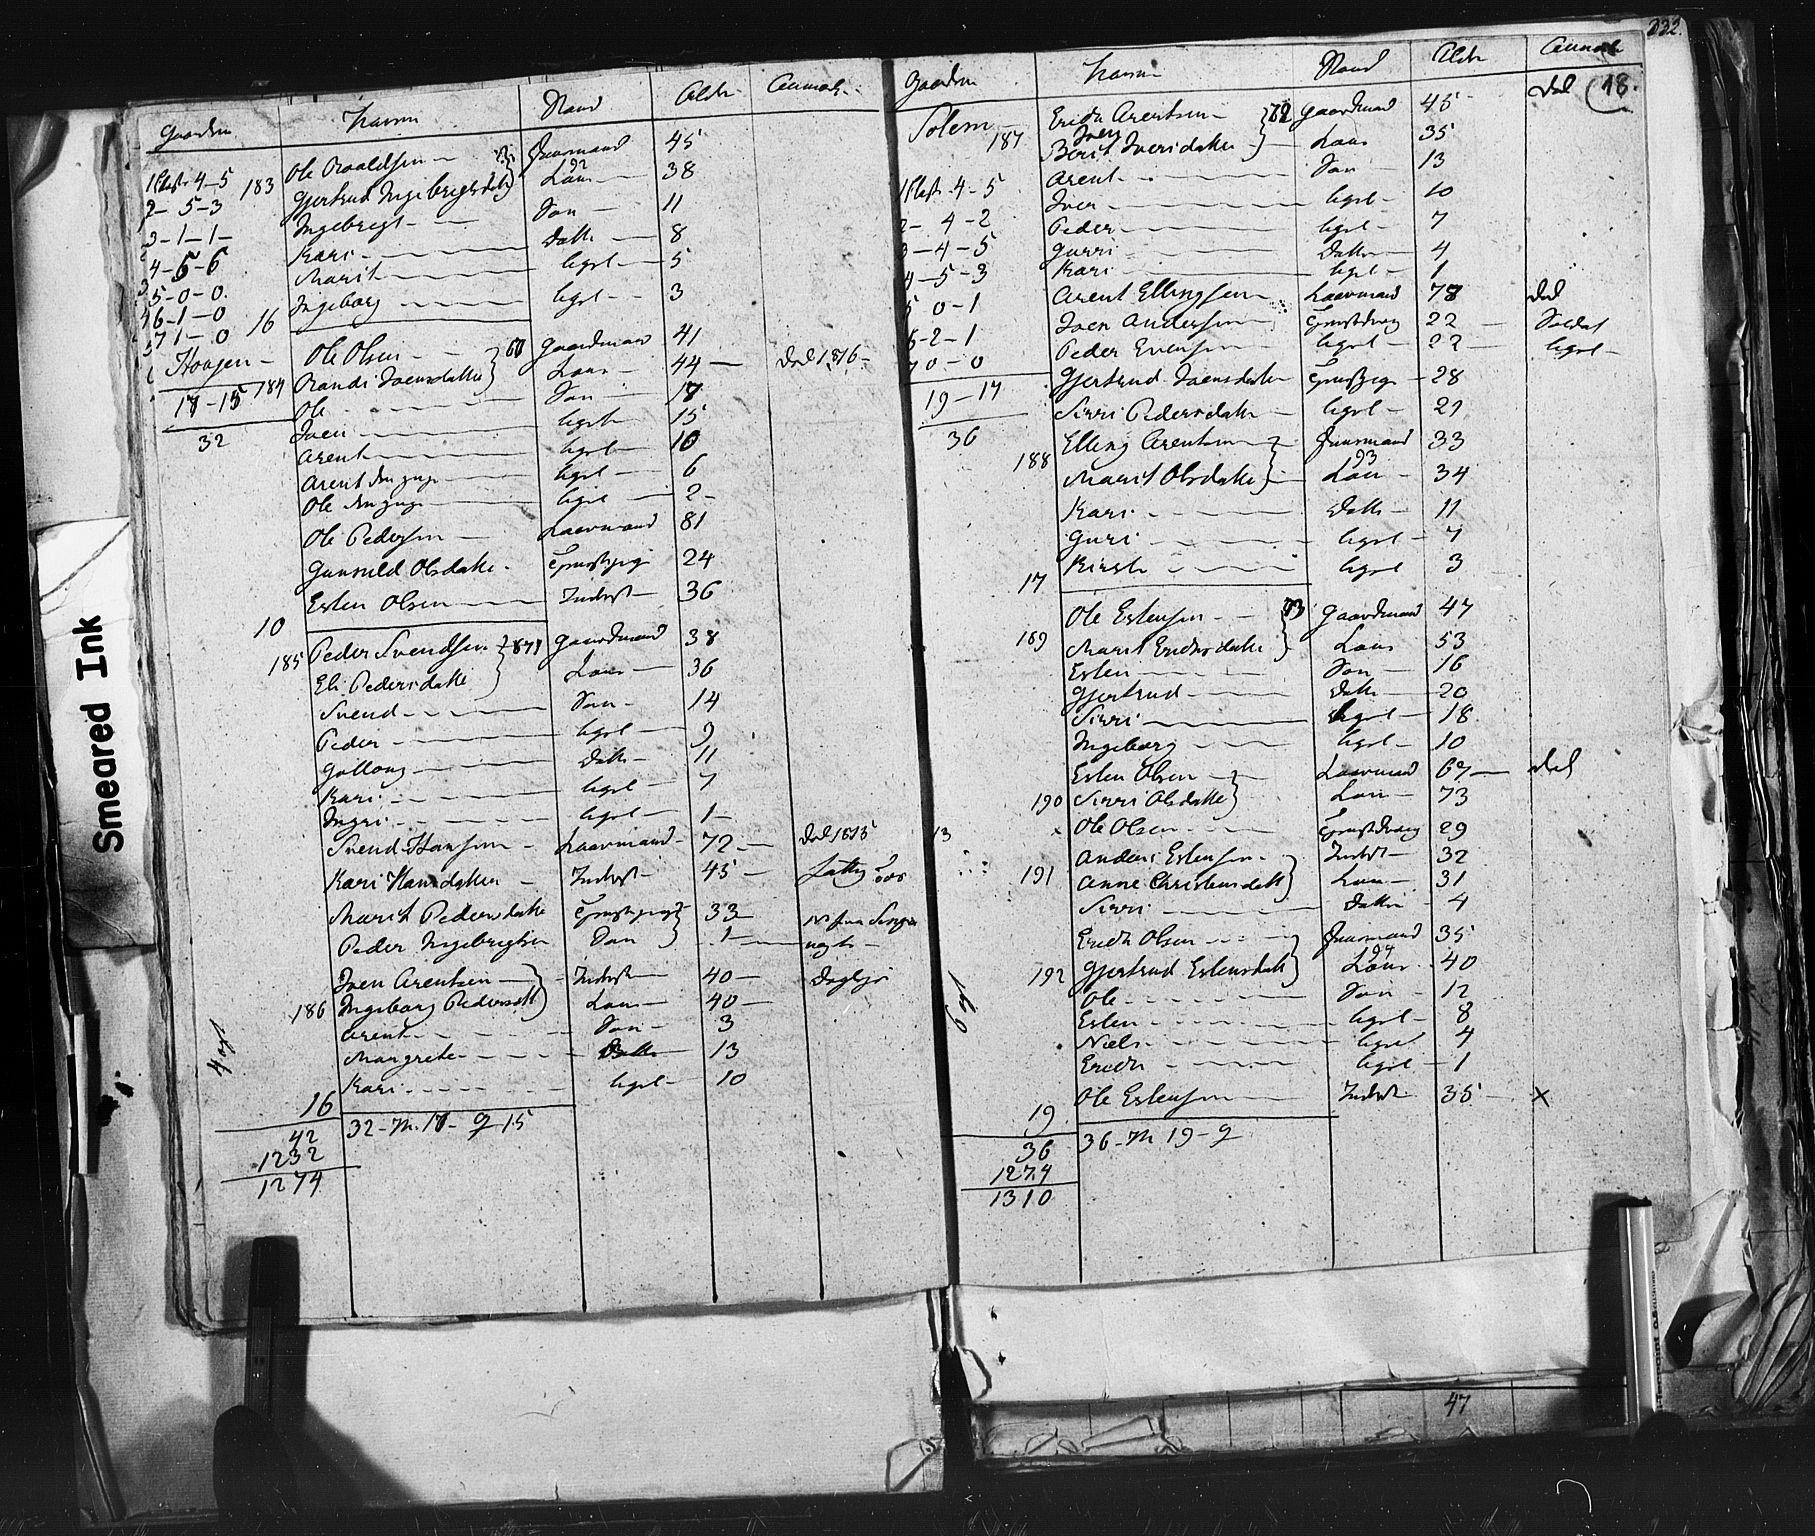 332.
Smeared Ink
Gaardene Navn Stand Alder Anmærk.
1 Klasse 4-5 183 Ole Roaldsen Huusmand 45
2-5-3 Gjertrud Ingebrigtsdatter Kone 38
3-1-1 Ingebrigt Søn 11
4-6-6 Kari Datter 8
5-0-0 Marit ligel 5
6-1-0 16 Ingeborg ligel 3
7 1-0
Hougen 184 Ole Olsen 60 Gaardmand 41
Randi Joensdatter Kone 44 Død 1816
17-15 Ole Søn 17
32 Joen ligel 15
Arent ligel 10
Arent den yngre ligel 6
Ole den yngre ligel 2
Ole Pedersen Kaarmand 81
Gunnild Olsdatter 24
10 Esten Olsen Inderst 36
185 Peder Svendsen Gaardmand 38
Eli Pedersdatter Kone 36
Svend Søn 14
Peder ligel 9
Gollaug Datter 11
Kari ligel 7
Ingri ligel 1
Svend Hansen Kaarmand 72 Død 1815
Kari Hansdatter Inderst 45
Marit Pedersdatter 33
Peder Ingebrigtsen Søn 1
Joen Arentsen Inderst 40
186 Ingeborg Pedersdatt Kone 40
Arent Søn 3
Margrete Datter 13
Kari ligel 10
4
16
42 32-M. 17- Q 15
1232
1274
Gaardene Navn Stand Alder Anmærk
18.
Solem 187 Erich Arentsen 72 Gaardmand 45 død
Berit Joensdatter Kone 35
Arent Søn 13
1 Klasse 4-5 Joen ligel 10
2- 4-2 Peder ligel 7
3-4-5 Gurri Datter 4
4-5-3 Kari ligel 1
5 0-1 Arent Ellingsen Kaarmand 78 død
6-2-1 Joen Andersen 22 Soldat
7 0-0 Peder Evensen ligel 22 ligel
Gjertrud Joensdatter 28
19-17 Sirri Pedersdatter ligel 29
36 Elling Arentsen Huusmand 33
188 Marit Olsdatter Kone 34
93
Kari Datter 11
Guri ligel 7
17 Kirsti ligel 3
189 Ole Estensen 73 Gaardmand 47
Marit Erichsdatter Kone 53
Esten Søn 16
Gjertrud Datter 20
Sirri ligel 18
Ingeborg ligel 10
Esten Olsen Kaarmand 67 død
190 Sirri Olsdatter Kone 73
13 Ole Olsen 29
Anders Estensen Inderst 32
191 Anne Christensdatt Kone 31
Sirri Datter 4
Erich Olsen Huusmand 35
192 Gjertrud Estensdatt Kone 40
94
Ole Søn 12
Esten ligel 8
Niels ligel 4
Erich ligel 1
Ole Estensen Inderst 35 x
6
19
36 36-M 19-Q
1274
1310
47